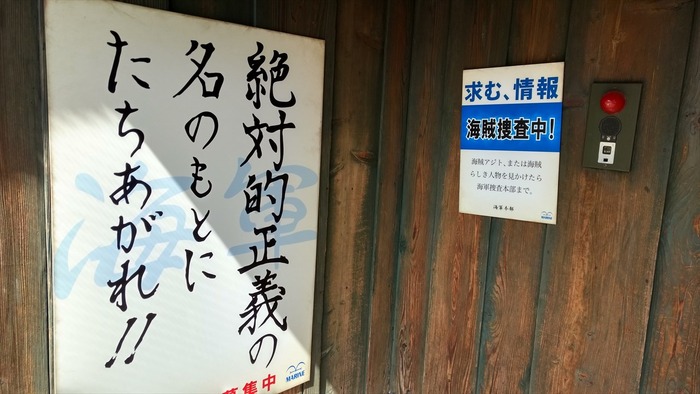 絶対的正義の
名のもとに
たちあがれ!!
海軍
募集中
MARINE
求む、情報
海賊捜査中!
海賊アジト、または海賊
らしき人物を見かけたら
海軍捜査本部まで。
海軍本部
MARINE